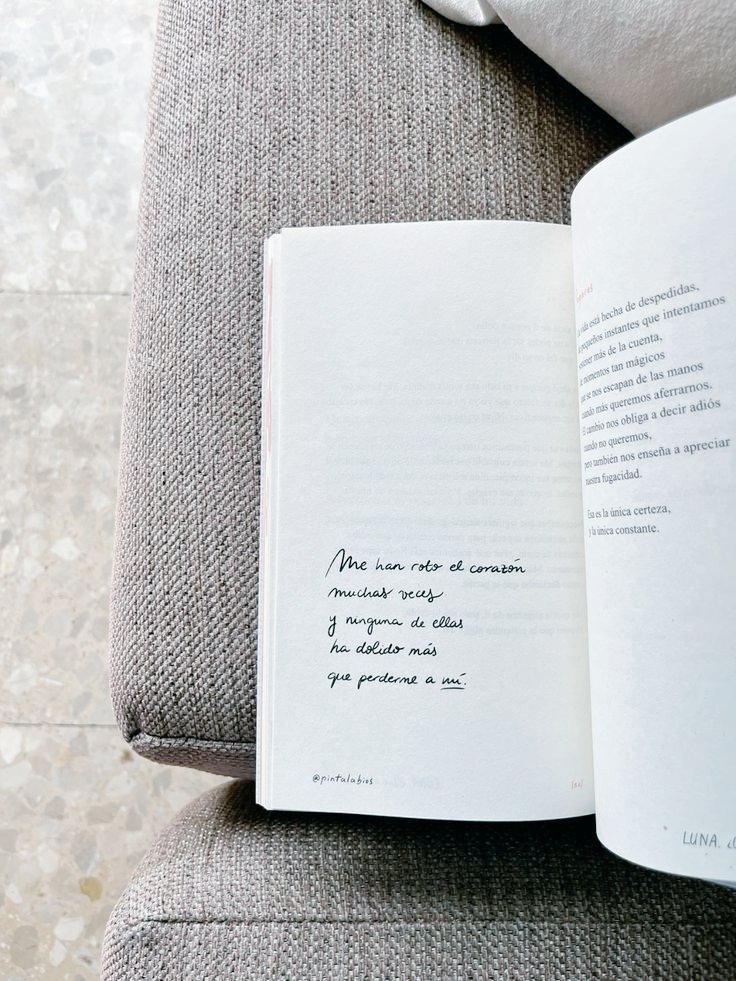 Me han roto el corazón
muchas veces
y ninguna de ellas
ha dolido más
que perderme a mí.
@pintalabios
vida está hecha de despedidas,
pequeños instantes que intentamos
más de la cuenta,
momentos tan mágicos
que se nos escapan de las manos
cuando más queremos aferrarnos.
El cambio nos obliga a decir adiós
cuando no queremos,
pero también nos enseña a apreciar
nuestra fugacidad.
Esa es la única certeza,
y la única constante.
LUNA.